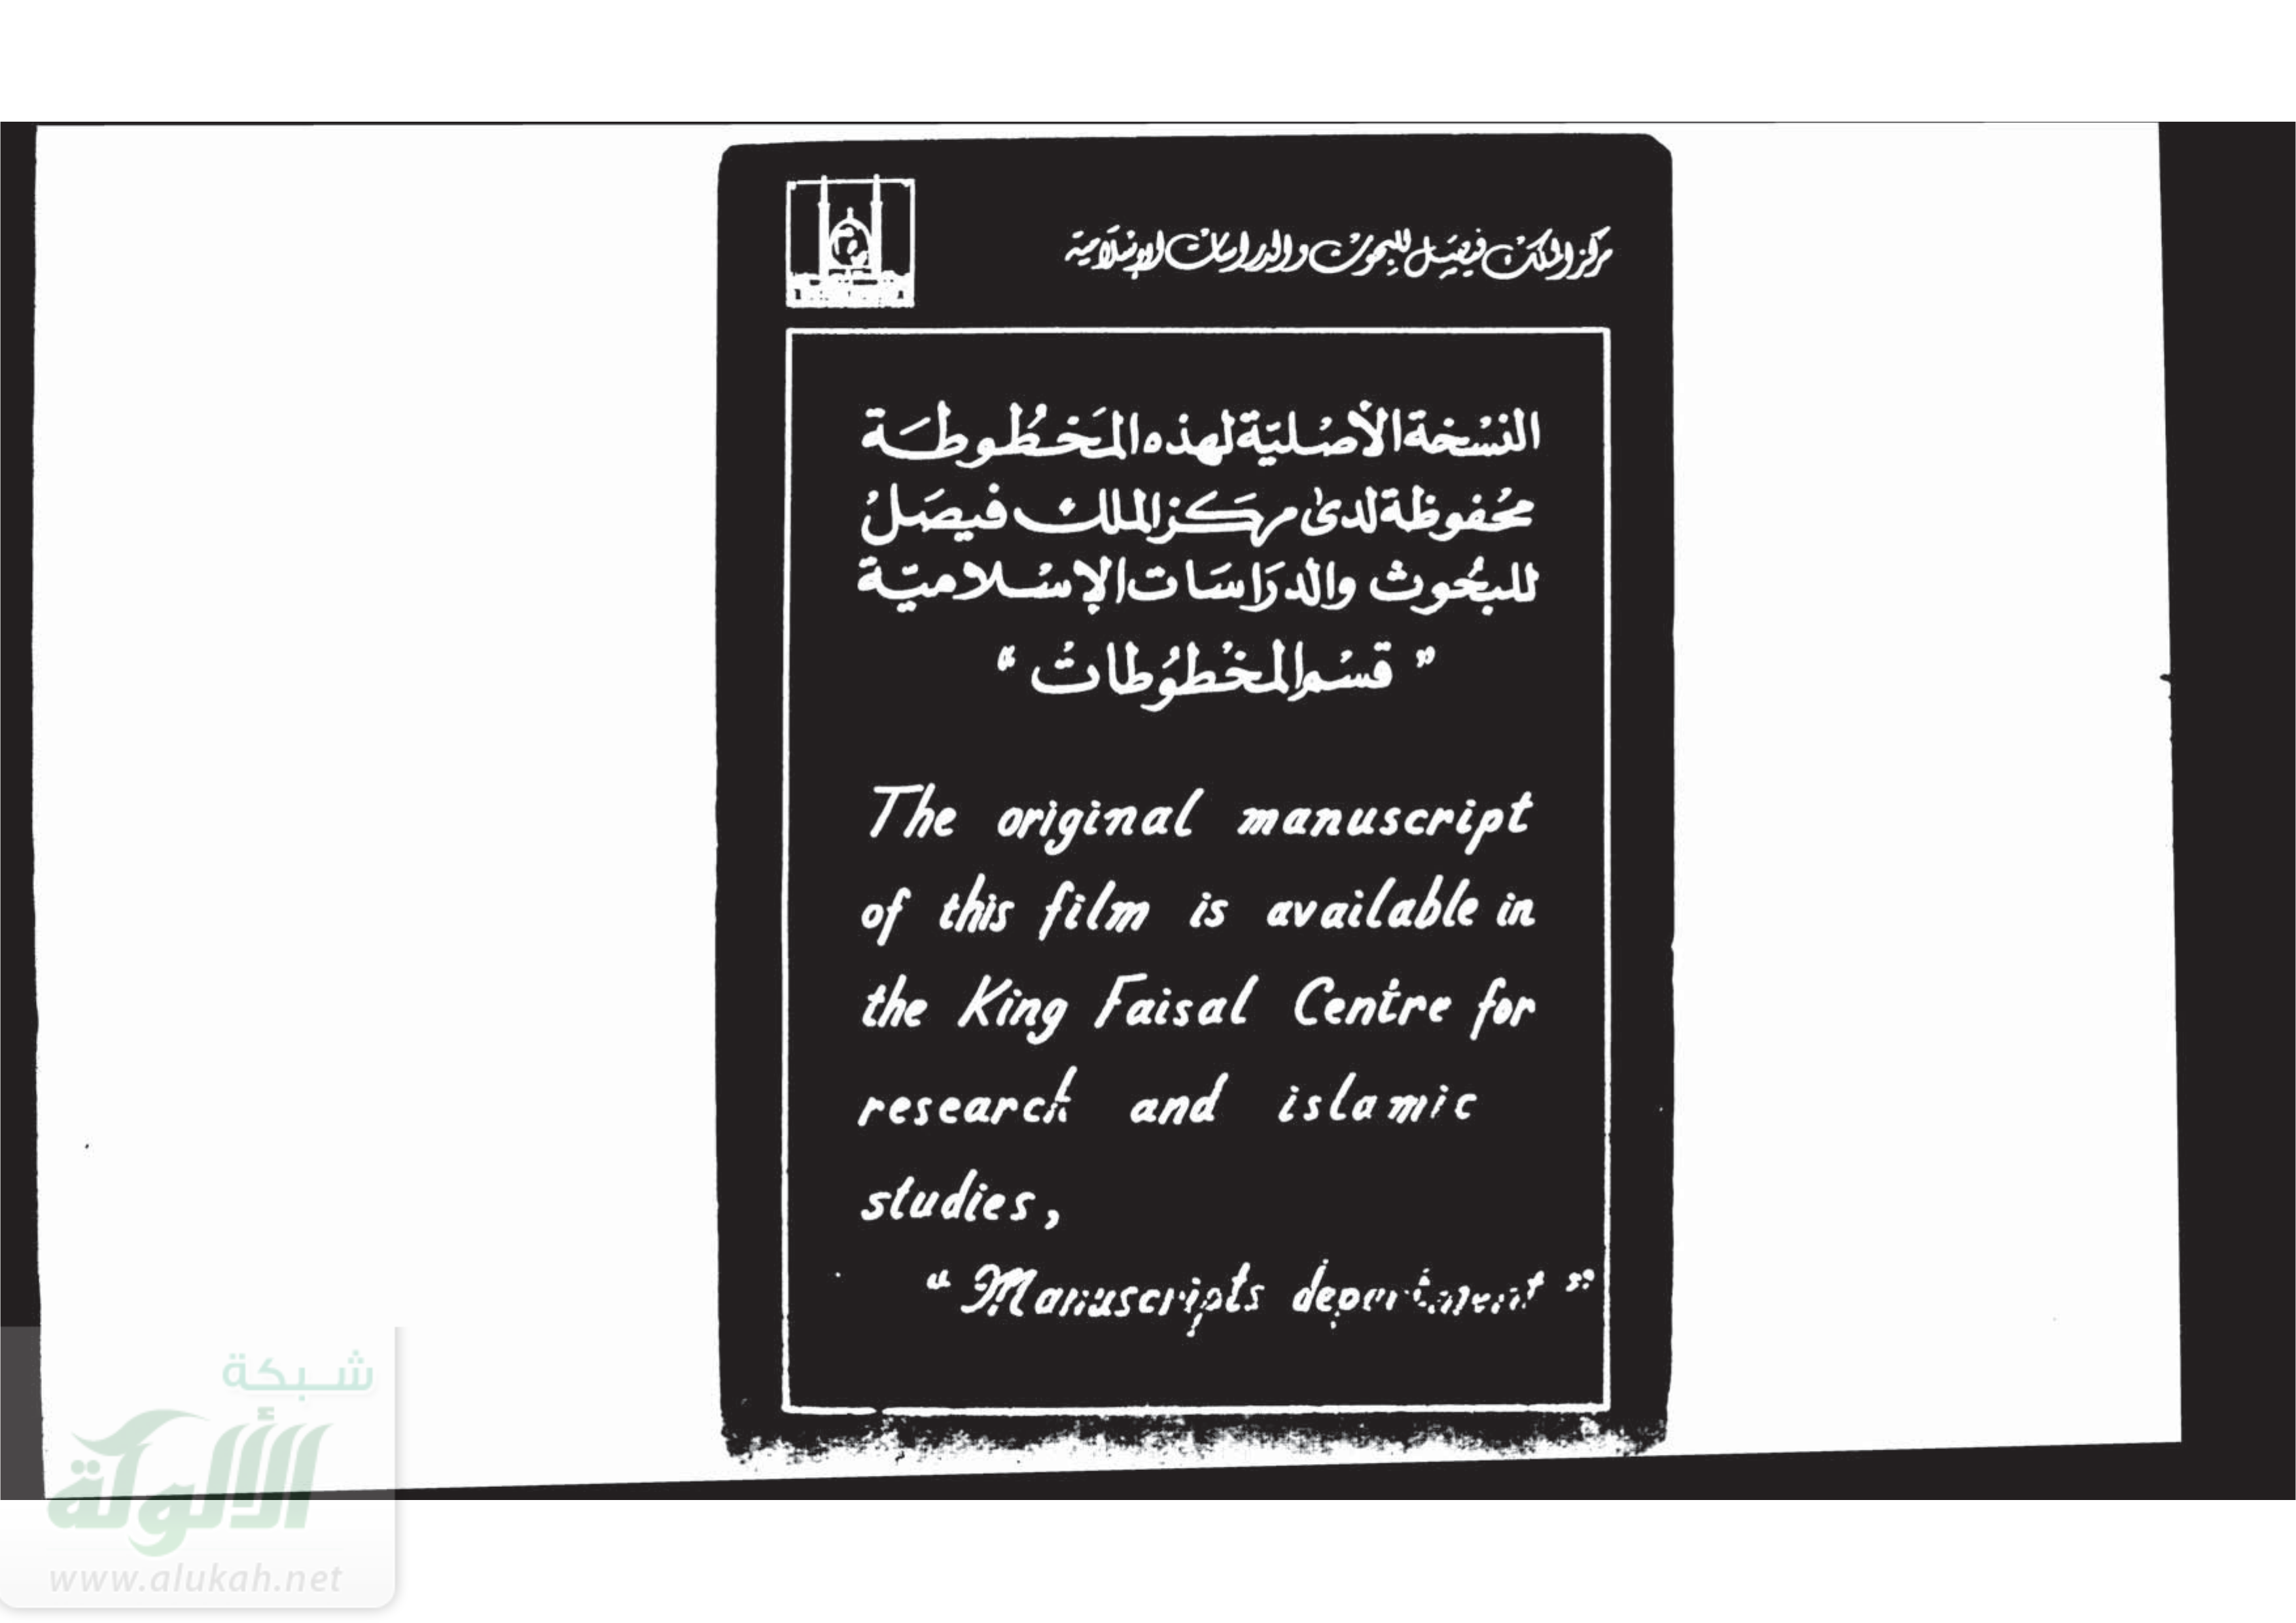 مركز الملك فيصل للبحوث والدراسات الإسلامية
النسخة الأصلية لهذه المخطوطة
محفوظة لدى مركز الملك فيصل
للبحوث والدراسات الإسلامية
" قسم المخطوطات "
The original manuscript
of this film is available in
the King Faisal Centre for
research and islamic
studies,
" Manuscripts department "
شبكة
الألوكة
www.alukah.net